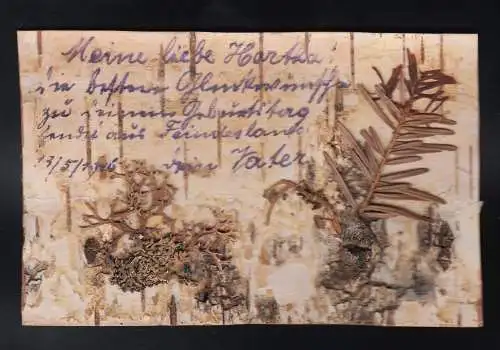 Meine liebe Hertha!
die besten Glückwünsche
zu deinem Geburtstag
sendet aus Feindesland
13/5/1916 dein Vater